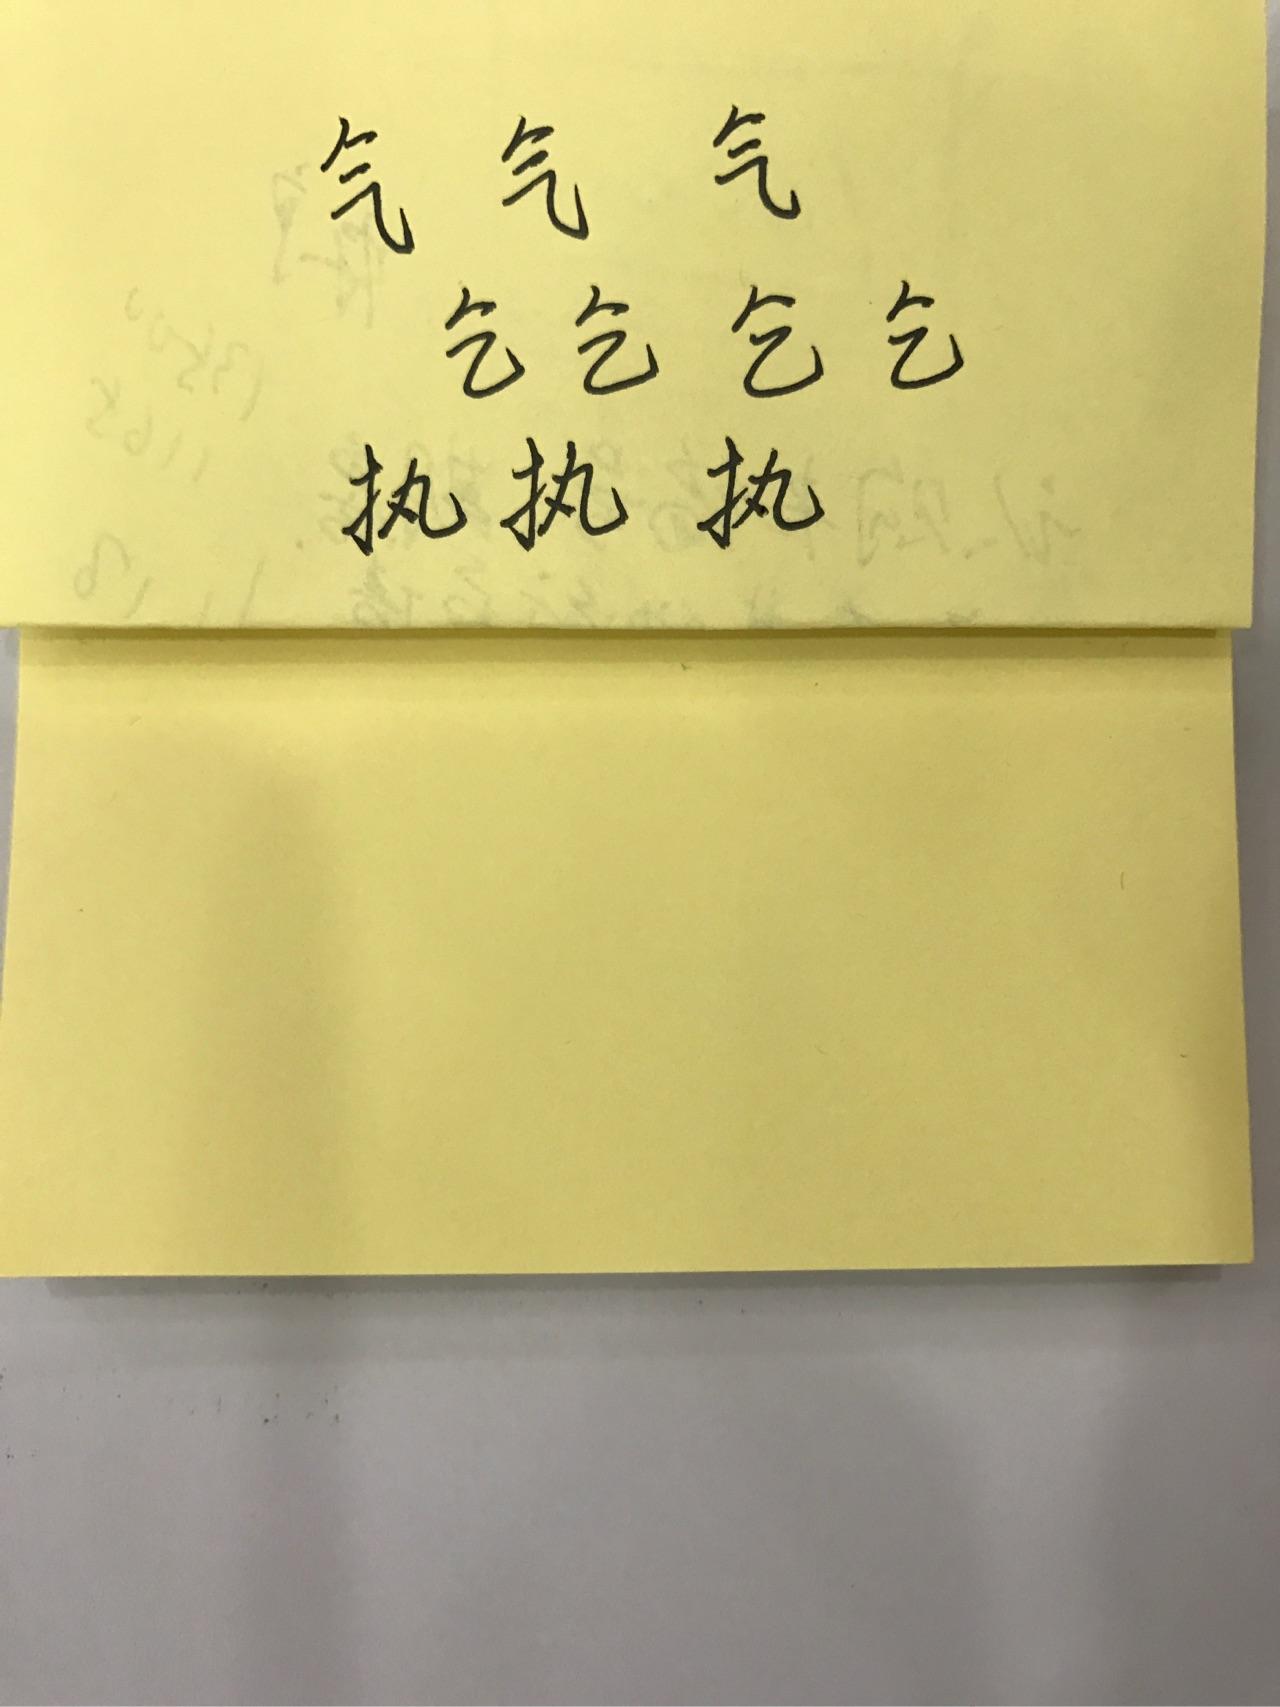 气 气 气
乞 乞 乞 乞
执 执 执